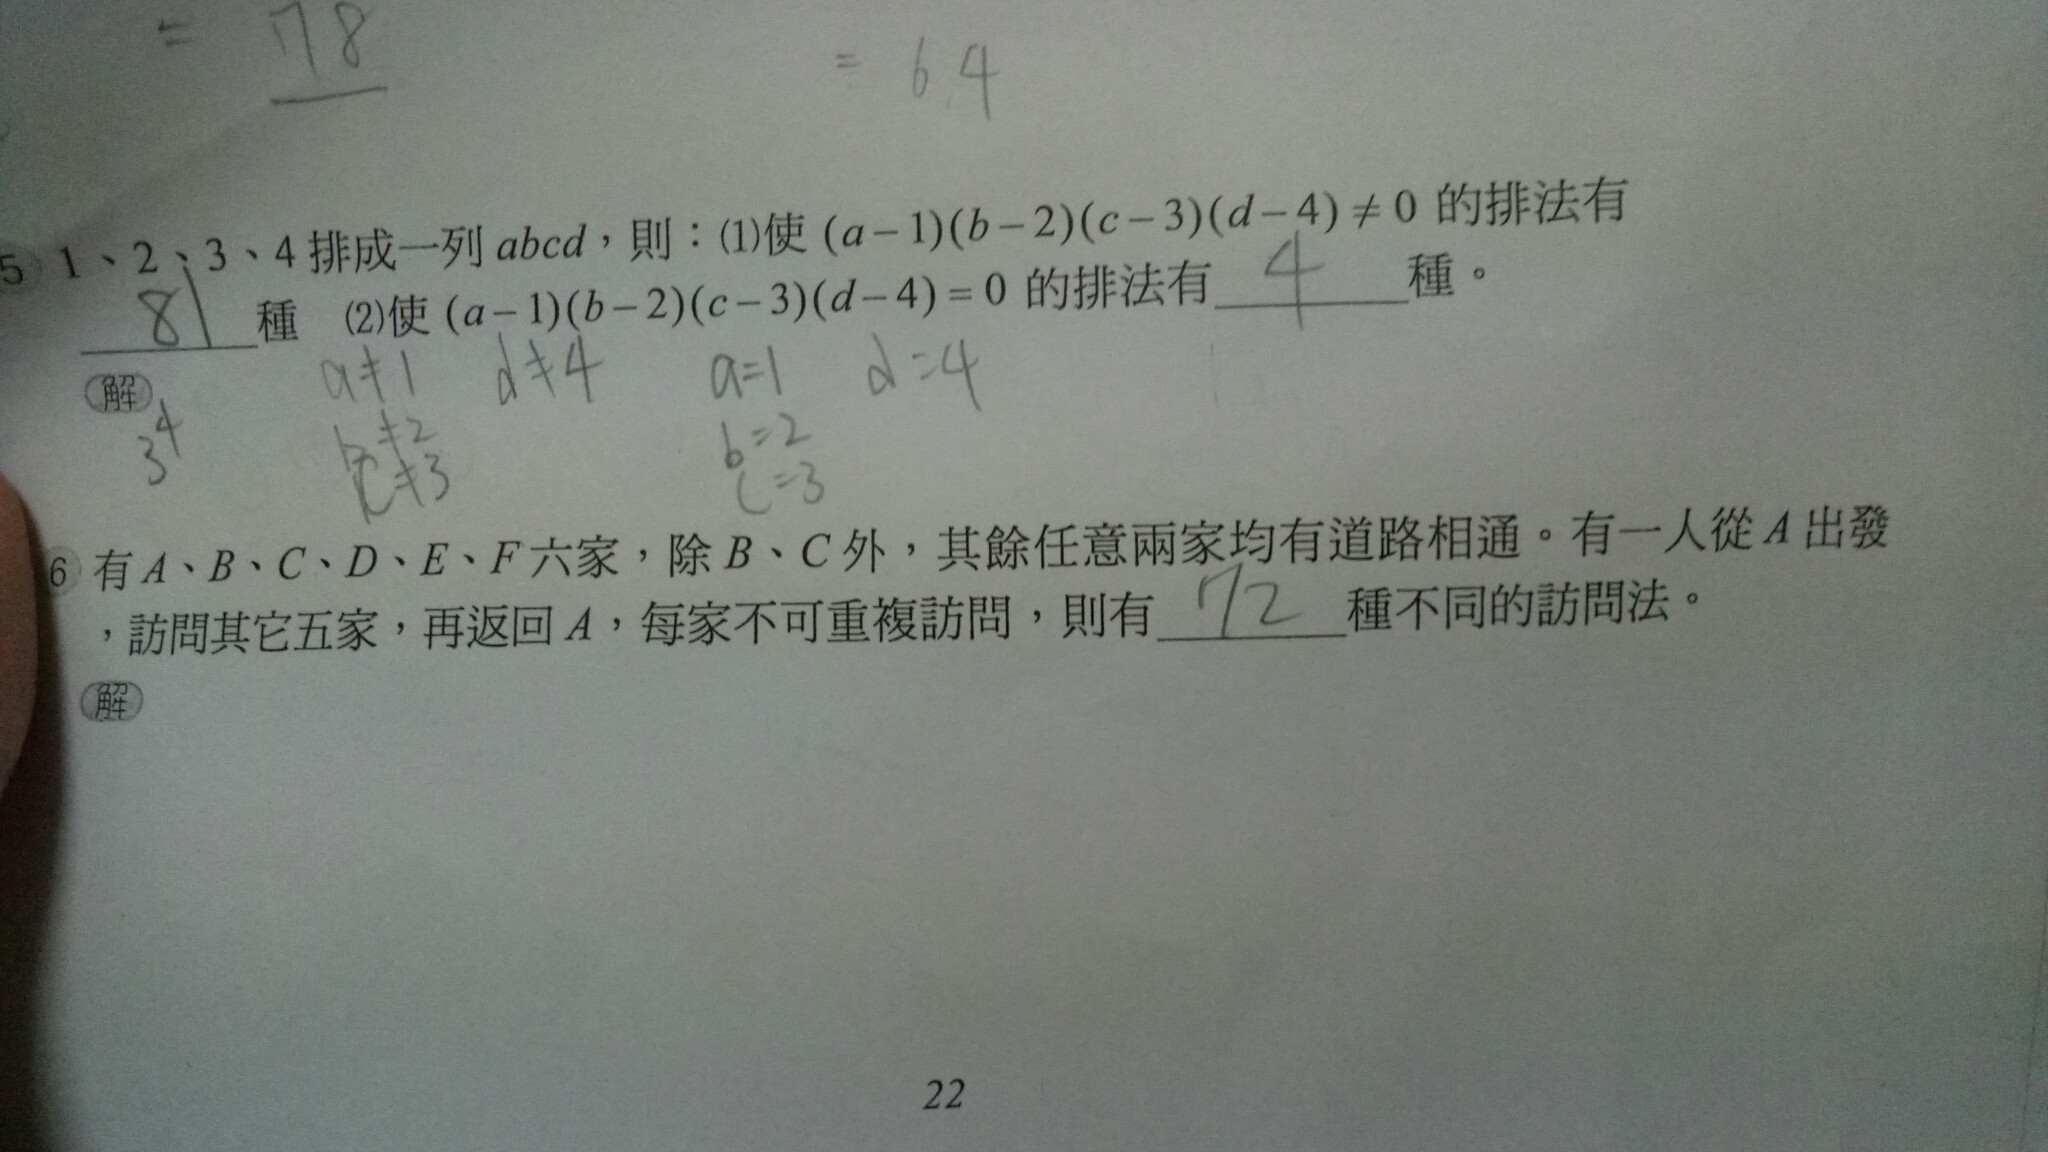 = 178
= 64
5 1、2、3、4 排成一列 abcd，則：⑴使 (a－1)(b－2)(c－3)(d－4) ≠ 0 的排法有
81 種 ⑵使 (a－1)(b－2)(c－3)(d－4) = 0 的排法有 4 種。
解 a≠1 d≠4 a=1 d=4
3⁴ b≠2 b=2
c≠3 c=3
6 有 A、B、C、D、E、F 六家，除 B、C 外，其餘任意兩家均有道路相通。有一人從 A 出發
，訪問其它五家，再返回 A，每家不可重複訪問，則有 72 種不同的訪問法。
解
22